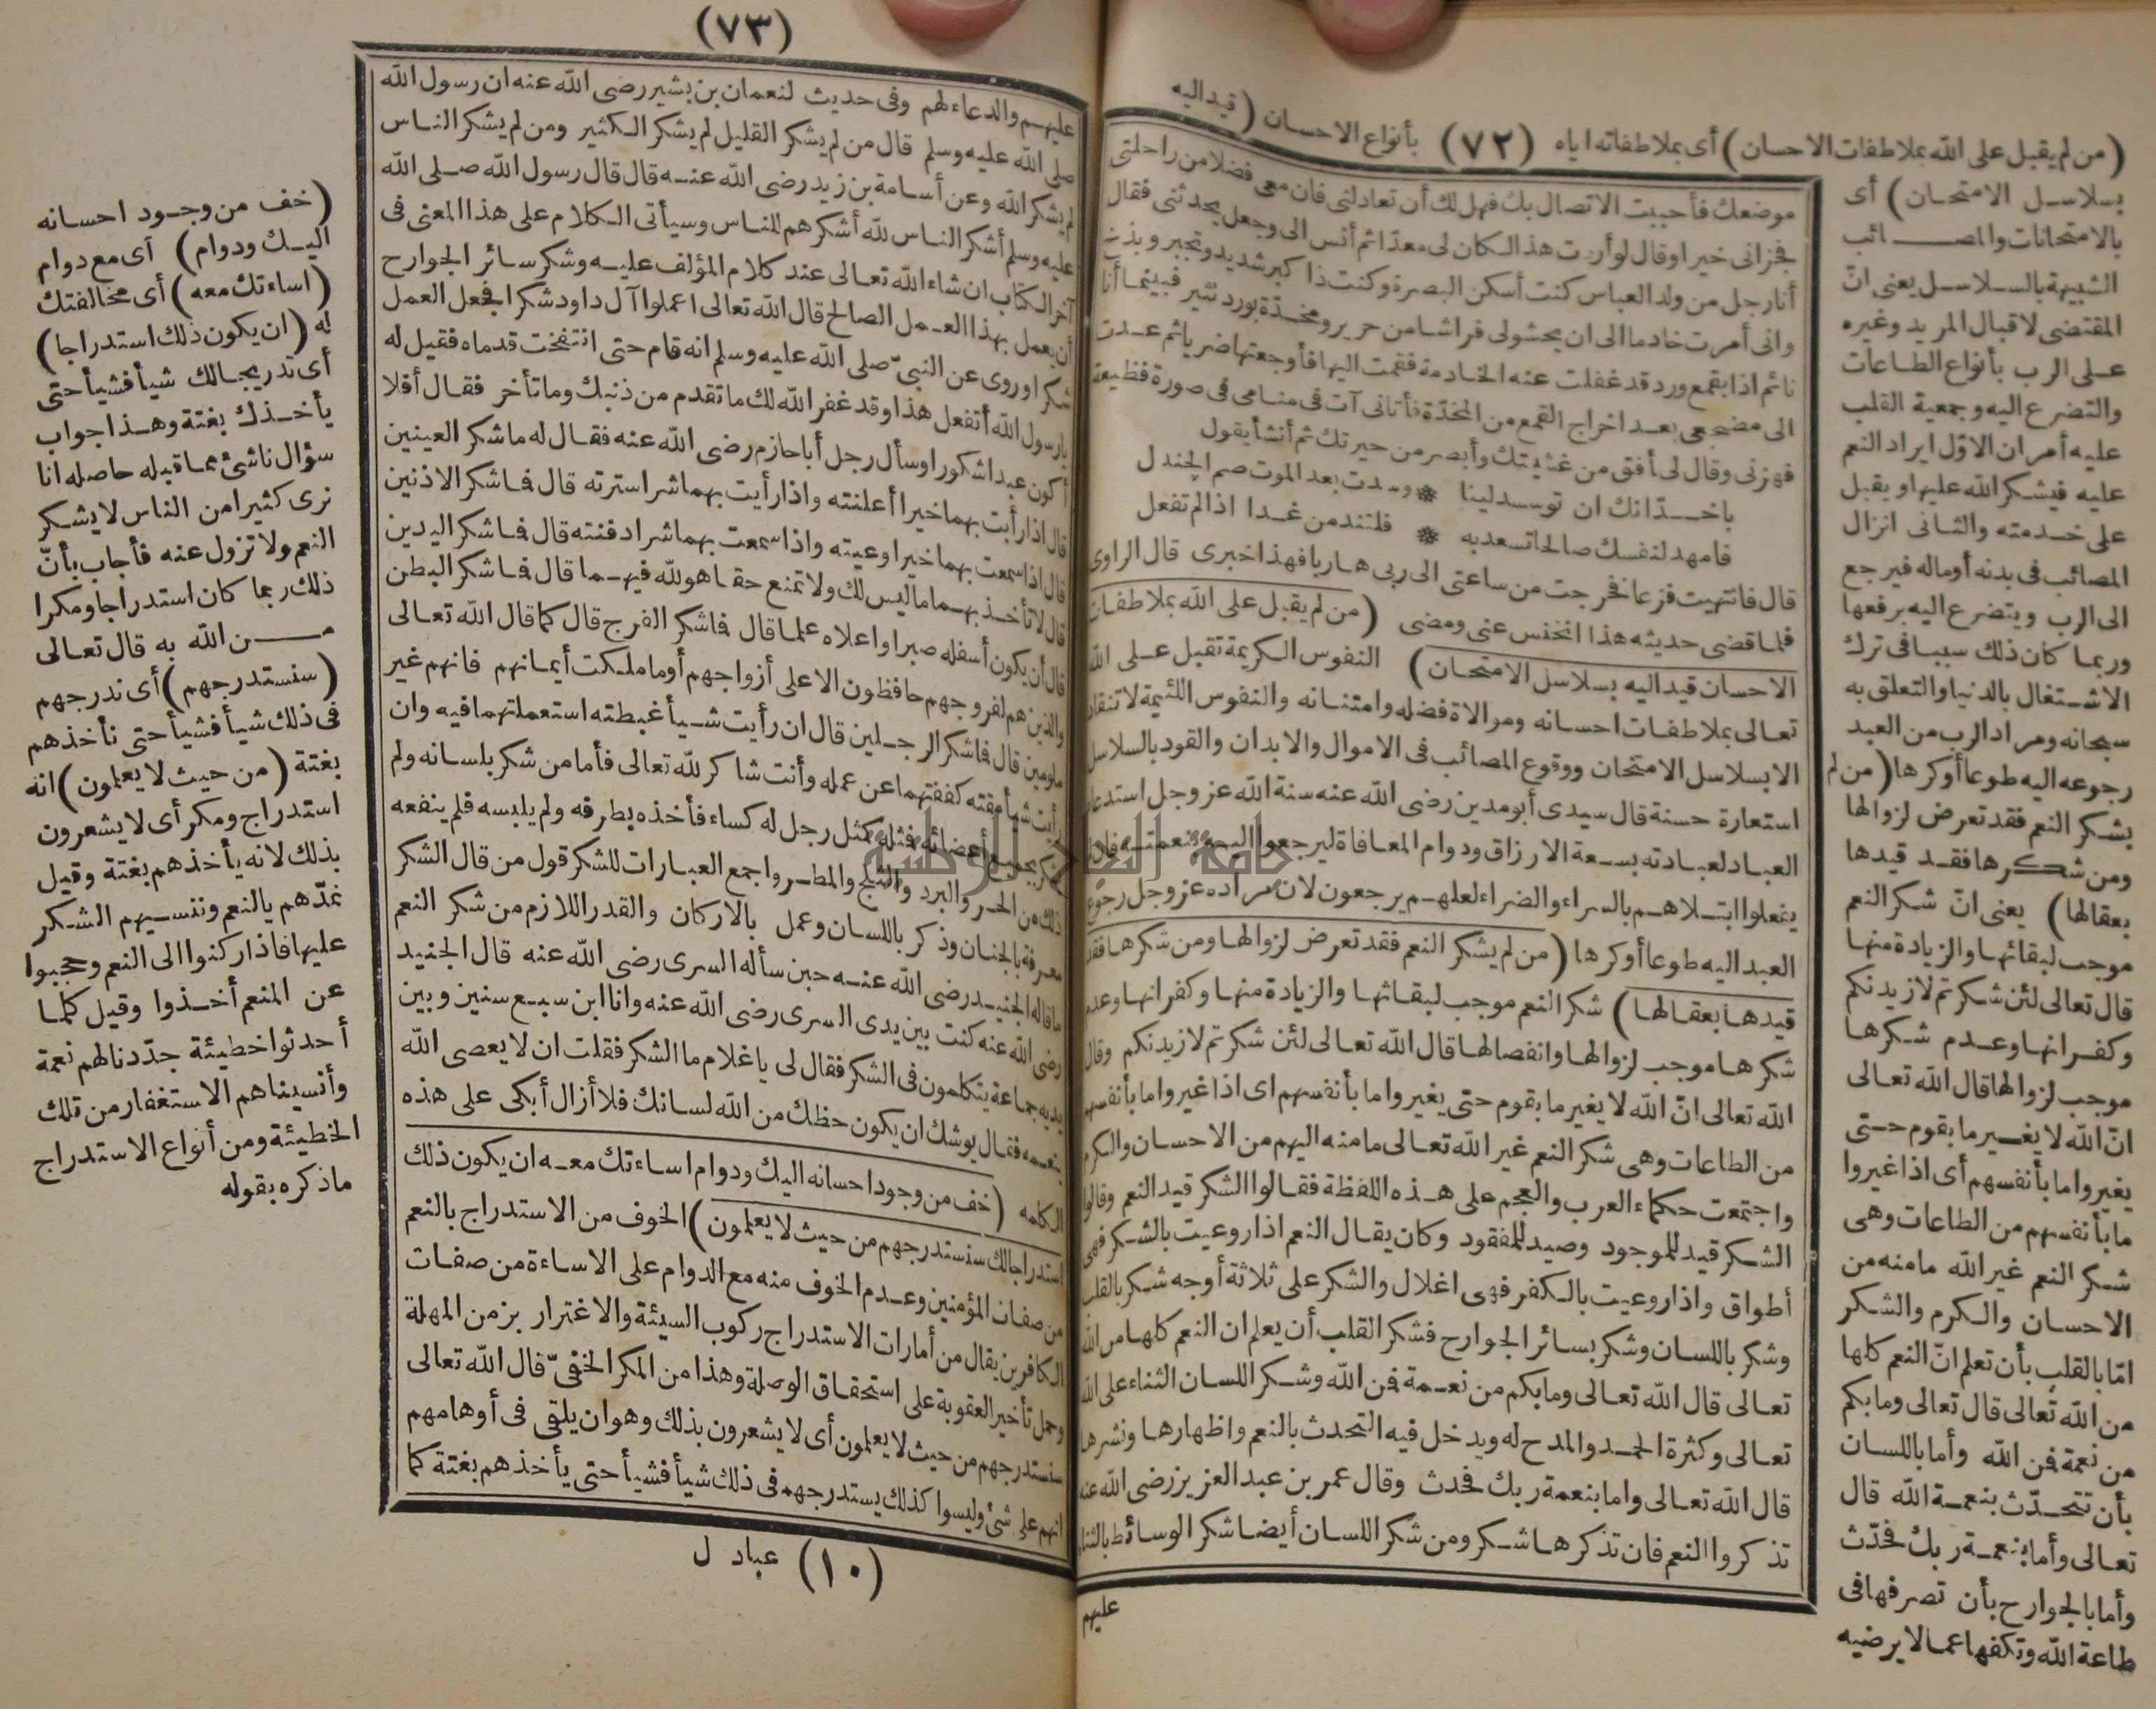 (من لم يقبل على الله بملاطفات الاحسان) أى بملاطفاته اياه (٧٢) بأنواع الاحسان (قيد اليه
موضعك فأحببت الاتصال بك فهل لك أن تعادلنى فان معى فضلا من راحلتى
فجزانى خيرا وقال لو أردت هذا لكان لى معدّا ثم أنس الى وجعل يحدثنى فقال
أنا رجل من ولد العباس كنت أسكن البصرة وكنت ذا كبر شديد وتجبر وبذخ
وانى أمرت خادما الى ان يحشو لى فراشا من حرير ومخدّة بورد نثير فبينما أنا
نائم اذا بقمع ورد قد غفلت عنه الخادمة فقمت اليها فأوجعتها ضربا ثم عدت
الى مضجعى بعد اخراج القمع من المخدّة فأتانى آت فى منامى فى صورة فظيعة
فهزنى وقال لى أفق من غشيتك وأبصر من حيرتك ثم أنشأ يقول
ياخدّ انك ان توسد لينا * وسدت بعد الموت صم الجندل
فامهد لنفسك صالحا تسعد به * فلتندمن غدا اذا لم تفعل
قال فانتهيت فزعا فخرجت من ساعتى الى ربى هاربا فهذا خبرى قال الراوى
فلما قضى حديثه هذا انخنس عنى ومضى (من لم يقبل على الله بملاطفات
الاحسان قيد اليه بسلاسل الامتحان) النفوس الكريمة تقبل على الله
تعالى بملاطفات احسانه وموالاة فضله وامتنانه والنفوس اللئيمة لا تنقاد
الا بسلاسل الامتحان ووقوع المصائب فى الاموال والابدان والقود بالسلاسل
استعارة حسنة قال سيدى أبو مدين رضى الله عنه سنة الله عز وجل استدعاء
العباد لعبادته بسعة الارزاق ودوام المعافاة ليرجعوا اليه بنعمته فان لم
يفعلوا ابتلاهم بالسراء والضراء لعلهم يرجعون لان مراده عز وجل رجوع
العبد اليه طوعا أو كرها (من لم يشكر النعم فقد تعرض لزوالها ومن شكرها فقد
قيدها بعقالها) شكر النعم موجب لبقائها والزيادة منها وكفرانها وعدم
شكرها موجب لزوالها وانفصالها قال الله تعالى لئن شكرتم لازيدنكم وقال
الله تعالى انّ الله لا يغير ما بقوم حتى يغيروا ما بأنفسهم اى اذا غيروا ما بأنفسهم
من الطاعات وهى شكر النعم غير الله تعالى ما منه اليهم من الاحسان والكرم
واجتمعت حكماء العرب والعجم على هذه اللفظة فقالوا الشكر قيد النعم وقالوا
الشكر قيد للموجود وصيد للمفقود وكان يقال النعم اذا روعيت بالشكر فهى
أطواق واذا روعيت بالكفر فهى اغلال والشكر على ثلاثة أوجه شكر بالقلب
وشكر باللسان وشكر بسائر الجوارح فشكر القلب أن يعلم ان النعم كلها من الله
تعالى قال الله تعالى وما بكم من نعمة فمن الله وشكر اللسان الثناء على الله
تعالى وكثرة الحمد والمدح له ويدخل فيه التحدث بالنعم واظهارها ونشرها
قال الله تعالى واما بنعمة ربك فحدث وقال عمر بن عبد العزيز رضى الله عنه
تذكروا النعم فان تذكرها شكر ومن شكر اللسان أيضا شكر الوسائط بالثناء
عليهم
بسلاسل الامتحان) أى
بالامتحانات والمصائب
الشبيهة بالسلاسل يعنى انّ
المقتضى لاقبال المريد وغيره
على الرب بأنواع الطاعات
والتضرع اليه وجمعية القلب
عليه أمران الاوّل ايراد النعم
عليه فيشكر الله عليها ويقبل
على خدمته والثانى انزال
المصائب فى بدنه أو ماله فيرجع
الى الرب ويتضرع اليه برفعها
وربما كان ذلك سببا فى ترك
الاشتغال بالدنيا والتعلق به
سبحانه ومراد الرب من العبد
رجوعه اليه طوعا أو كرها (من لم
يشكر النعم فقد تعرض لزوالها
ومن شكرها فقد قيدها
بعقالها) يعنى انّ شكر النعم
موجب لبقائها والزيادة منها
قال تعالى لئن شكرتم لازيدنكم
وكفرانها وعدم شكرها
موجب لزوالها قال الله تعالى
انّ الله لا يغير ما بقوم حتى
يغيروا ما بأنفسهم أى اذا غيروا
ما بأنفسهم من الطاعات وهى
شكر النعم غير الله ما منه من
الاحسان والكرم والشكر
امّا بالقلب بأن تعلم انّ النعم كلها
من الله تعالى قال تعالى وما بكم
من نعمة فمن الله وأما باللسان
بأن تتحدّث بنعمة الله قال
تعالى وأما بنعمة ربك فحدّث
وأما بالجوارح بأن تصرفها فى
طاعة الله وتكفها عما لا يرضيه
(٧٣)
عليهم والدعاء لهم وفى حديث لنعمان بن بشير رضى الله عنه ان رسول الله
صلى الله عليه وسلم قال من لم يشكر القليل لم يشكر الكثير ومن لم يشكر الناس
لم يشكر الله وعن أسامة بن زيد رضى الله عنه قال قال رسول الله صلى الله
عليه وسلم أشكر الناس لله أشكرهم للناس وسيأتى الكلام على هذا المعنى فى
آخر الكتاب ان شاء الله تعالى عند كلام المؤلف عليه وشكر سائر الجوارح
أن يعمل بهذا العمل الصالح قال الله تعالى اعملوا آل داود شكرا فجعل العمل
شكرا وروى عن النبىّ صلى الله عليه وسلم انه قام حتى انتفخت قدماه فقيل له
يا رسول الله أتفعل هذا وقد غفر الله لك ما تقدم من ذنبك وما تأخر فقال أفلا
أكون عبدا شكورا وسأل رجل أبا حازم رضى الله عنه فقال له ما شكر العينين
قال اذا رأيت بهما خيرا أعلنته واذا رأيت بهما شرا سترته قال فما شكر الاذنين
قال اذا سمعت بهما خيرا وعيته واذا سمعت بهما شرا دفنته قال فما شكر اليدين
قال لا تأخذ بهما ما ليس لك ولا تمنع حقا هو لله فيهما قال فما شكر البطن
قال أن يكون أسفله صبرا واعلاه علما قال فما شكر الفرج قال كما قال الله تعالى
والذين هم لفروجهم حافظون الا على أزواجهم أو ما ملكت أيمانهم فانهم غير
ملومين قال فما شكر الرجلين قال ان رأيت شيأ غبطته استعملتهما فيه وان
رأيت شيأ مقته كففتهما عن عمله وأنت شاكر لله تعالى فأما من شكر بلسانه ولم
يشكر بجميع أعضائه فمثله كمثل رجل له كساء فأخذه بطرفه ولم يلبسه فلم ينفعه
ذلك من الحر والبرد والثلج والمطر واجمع العبارات للشكر قول من قال الشكر
معرفة بالجنان وذكر باللسان وعمل بالاركان والقدر اللازم من شكر النعم
ما قاله الجنيد رضى الله عنه حين سأله السرى رضى الله عنه قال الجنيد
رضى الله عنه كنت بين يدى السرى رضى الله عنه وانا ابن سبع سنين وبين
يديه جماعة يتكلمون فى الشكر فقال لى يا غلام ما الشكر فقلت ان لا يعصى الله
بنعمه فقال يوشك ان يكون حظك من الله لسانك فلا أزال أبكى على هذه
الكلمه (خف من وجود احسانه اليك ودوام اساءتك معه ان يكون ذلك
استدراجا لك سنستدرجهم من حيث لا يعلمون) الخوف من الاستدراج بالنعم
من صفات المؤمنين وعدم الخوف منه مع الدوام على الاساءة من صفات
الكافرين يقال من أمارات الاستدراج ركوب السيئة والاغترار بزمن المهلة
وحمل تأخير العقوبة على استحقاق الوصلة وهذا من المكر الخفىّ قال الله تعالى
سنستدرجهم من حيث لا يعلمون أى لا يشعرون بذلك وهو ان يلقى فى أوهامهم
انهم على شئ وليسوا كذلك يستدرجهم فى ذلك شيأ فشيأ حتى يأخذهم بغتة كما
(١٠) عباد ل
(خف من وجود احسانه
اليك ودوام) أى مع دوام
(اساءتك معه) أى مخالفتك
له (ان يكون ذلك استدراجا)
أى تدريجا لك شيأ فشيأ حتى
يأخذك بغتة وهذا جواب
سؤال ناشئ مما قبله حاصله انا
نرى كثيرا من الناس لا يشكر
النعم ولا تزول عنه فأجاب بأنّ
ذلك ربما كان استدراجا ومكرا
من الله به قال تعالى
(سنستدرجهم) أى ندرجهم
فى ذلك شيأ فشيأ حتى نأخذهم
بغتة (من حيث لا يعلمون) انه
استدراج ومكر أى لا يشعرون
بذلك لانه يأخذهم بغتة وقيل
نمدّهم بالنعم وننسيهم الشكر
عليها فاذا ركنوا الى النعم وحجبوا
عن المنعم أخذوا وقيل كلما
أحدثوا خطيئة جدّدنا لهم نعمة
وأنسيناهم الاستغفار من تلك
الخطيئة ومن أنواع الاستدراج
ما ذكره بقوله
جامعة النجاح الوطنية